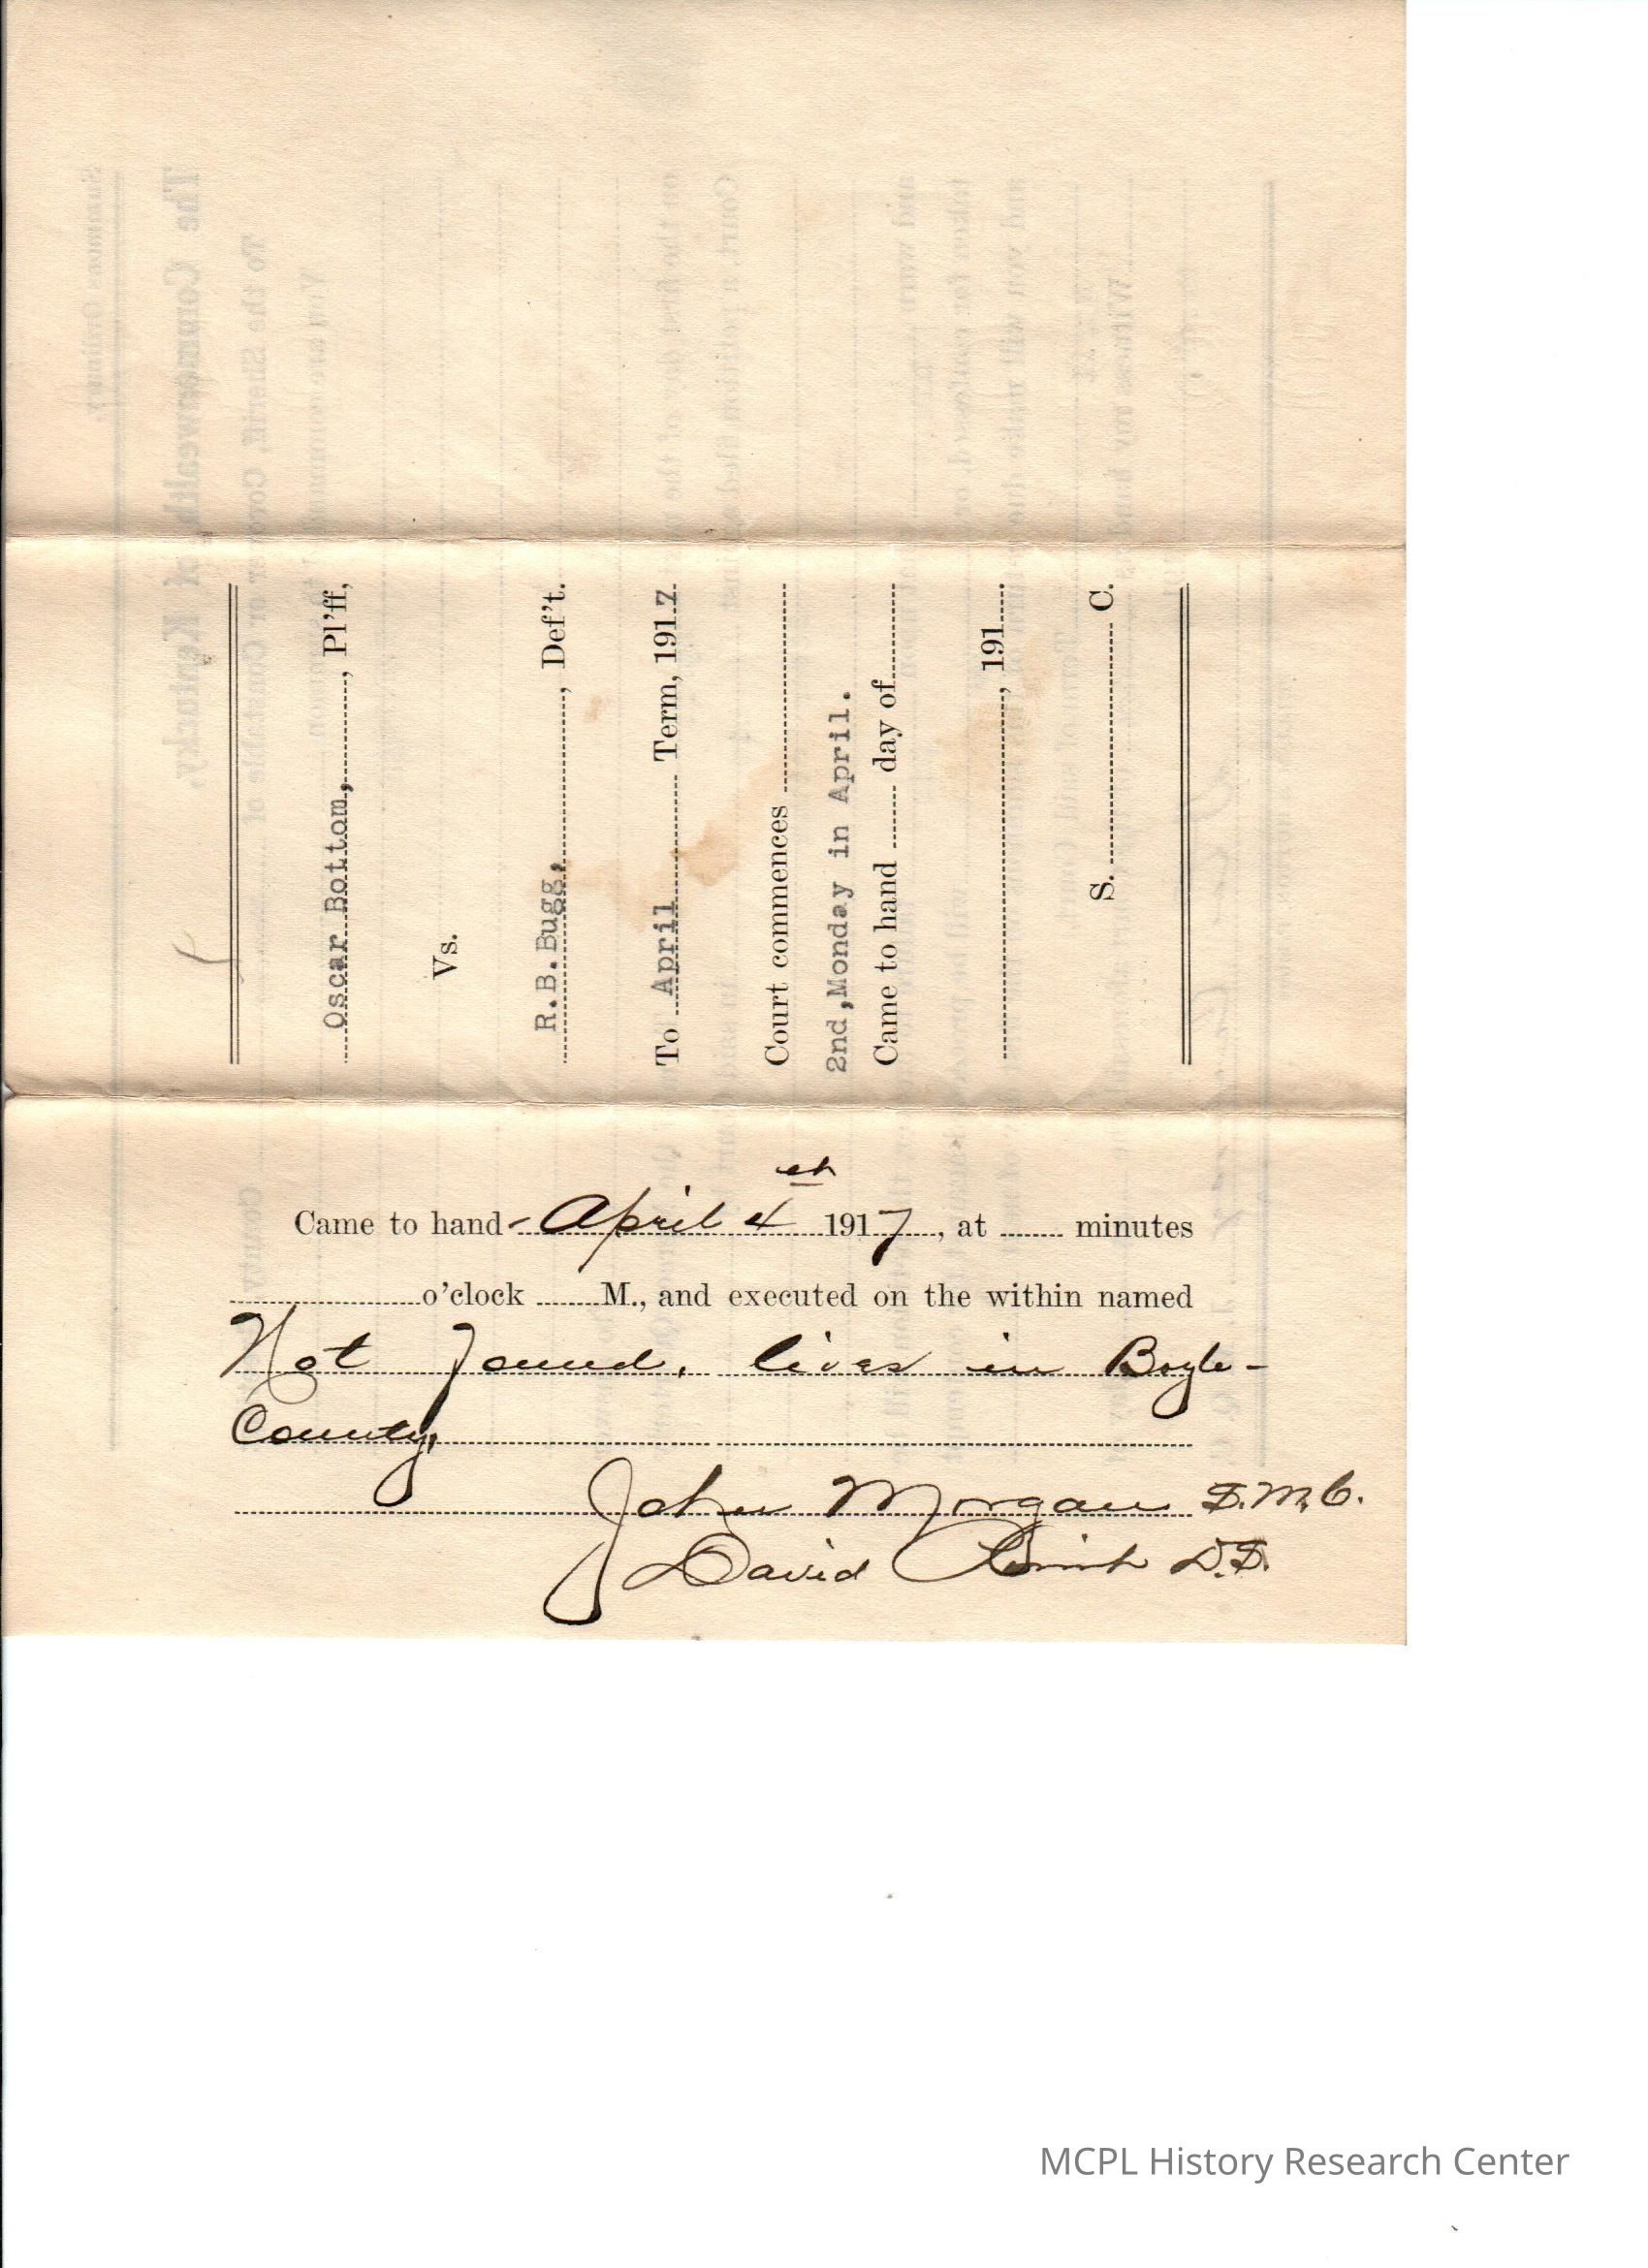 Oscar Bottom, , Pl'ff,
Vs.
R.B.Bugg, , Def't.
To April Term, 1917
Court commences
2nd,Monday in April.
Came to hand day of
, 191
S. C.
Came to hand - April 4th 1917, at minutes
o'clock M., and executed on the within named
Not Found, lives in Boyle -
County,
John Morgan S.M.C.
David D.S.
MCPL History Research Center